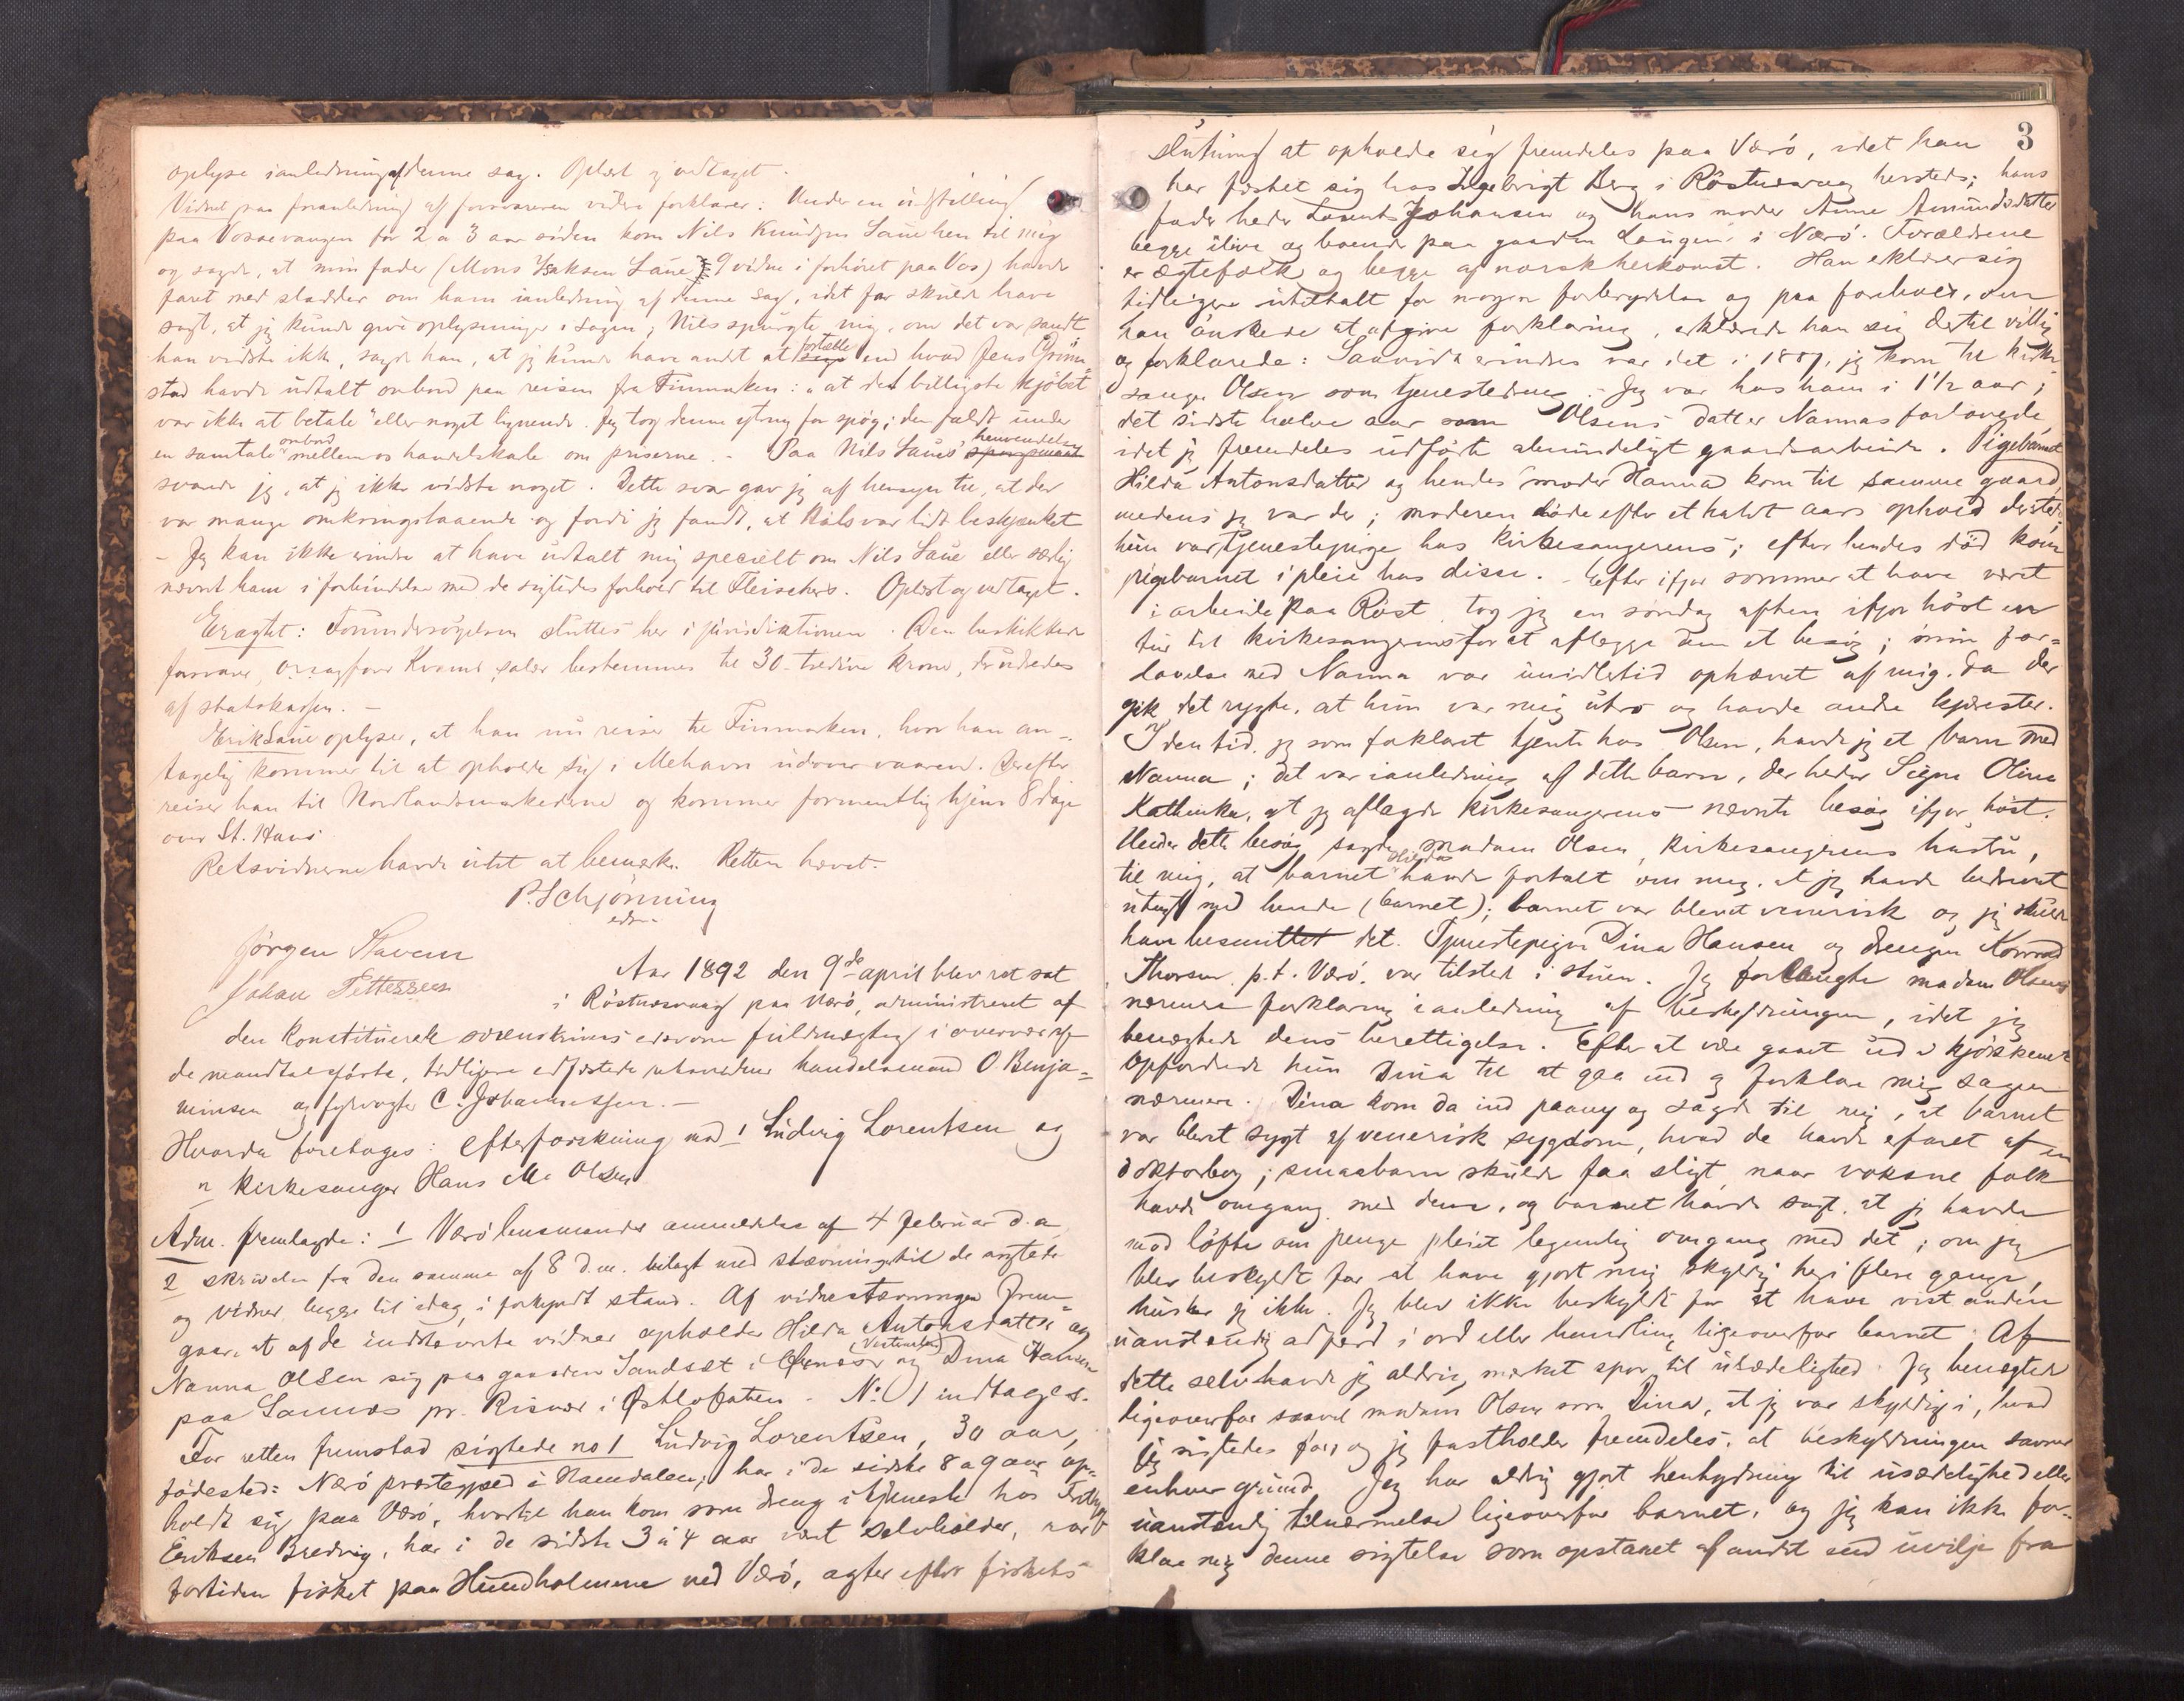 oplyse i anledning af denne sag. Oplæst og vedtaget.
Vidnet paa foranledning af forsvareren videre forklarer: Under en udstilling
paa Vossevangen for 2 a 3 aar siden kom Nils Knudsen Saue hen til mig
og sagde, at min fader (Mons Isaksen Saue, 9 vidne i forhöret paa Vos) havde
faret med sladder om ham ianledning af denne sag, idet far skulde have
sagt, at jeg kunde give oplysninger i sagen; Nils spurgte mig, om det var sandt
han vidste ikke, sagde han, at jeg kunde have andet at fortælle end hvad Jens Grim-
stad havde udtalt ombord paa reisen fra Finmarken: "at det billigste kjöbet
var ikke at betale" eller noget lignende. Jeg tog denne ytring for spög; den faldt under
en samtale ombord mellem os handelskarle om priserne. - Paa Nils Saues henvendelse
svarede jeg, at jeg ikke vidste noget. Dette svar gav jeg af hensyn til, at der
var mange omkringstaaende og fordi jeg fandt, at Nils var lidt beskjænket
- Jeg kan ikke erindre at have udtalt mig specielt om Nils Saue eller særlig
nævnt ham i forbindelse med de sigtedes forhold til Fleischers. Oplæst og vedtaget.
Eragtet: Forundersögelsen sluttes her i jurisdiktionen. Den beskikkede
forsvarer, orsagförer Kvams salær bestemmes til 30 - tredive kroner, der udredes
af statskassen. -
Erik Saue oplyser, at han nu reiser til Finmarken, hvor han an-
tagelig kommer til at opholde sig i Mehavn udover vaaren. Derefter
reiser han til Nordlandsmarkederne og kommer formentlig hjem 8 dage
over St. Hans.
Retsvidnerne havde intet at bemærke. Retten hævet.
P. Schjönning
edsv.
Jörgen Stavem
Johan Pettersen
Aar 1892 den 9de april blev ret sat
i Röstnesvaag paa Værö, administreret af
den konstituerede sorenskrivers edsvorne fuldmægtig i overvær af
de mandtalsförte, tidligere edfæstede retsvidner handelsmand O. Benja-
minsen og fyrvogter C. Johannessen. -
Hvorda foretoges: Efterforskning mod 1 Ludvig Lorentsen og
2 Kirkesanger Hans M. Olsen
Adm. fremlagde: 1 Værö lensmands anmeldelse af 4 februar d.a.
2 skrivelse fra den samme af 8 d.m. bilagt med stævning til de sigtede
og vidner begge til idag, i forkyndt stand. Af vidnestævningen frem-
gaar, at af de indstævnte vidner opholder Hilda Antonsdatter og
Nanna Olsen sig paa gaarden Sandset i Öxnes i Vesteraalen og Dina Hansen
paa Sannes pr. Risvær i Östlofoten. No. 1 indtages.
For retten fremstod sigtede no 1 Ludvig Lorentsen, 30 aar,
födested: Nærö præstegjeld i Namdalen; har i de sidste 8 a 9 aar op-
holdt sig paa Værö, hvortil han kom som dreng i tjeneste hos
Eriksen Bredvig, har i de sidste 3 à 4 aar været selvholder, har
fortiden fisket paa Hundholmene ved Værö, agter efter fiskets
3
slutning at opholde sig fremdeles paa Værö, idet han
har fæstet sig hos Ingebrigt Berg i Röstnesvaag hersteds; hans
fader heder Lorents Johansen og hans moder Anne Amundsdatter
begge ilive og boende paa gaarden Laugen i Nærö. Forældrene
er ægtefolk og begge af norsk herkomst. Han erklærer sig
tidligere utiltalt for nogen forbrydelse og paa forehold, om
han önskede at afgive forklaring, erklærede han sig dertil villig
og forklarede: Saavidt erindres var det i 1887, jeg kom til kirke-
sanger Olsen som tjenestedreng. Jeg var hos ham i 1½ aar;
det sidste halve aar som Olsens datter Nannas forlovede
idet jeg fremdeles udförte almindeligt gaardsarbeide. Pigebarnet
Hilda Antonsdatter og hendes moder Hanna kom til samme gaard,
medens jeg var der; moderen döde efter et halvt aars ophold dersteds
hun var tjenestepige hos kirkesangerens; efter hendes död kom
pigebarnet i pleie hos disse. - Efter ifjor sommer at have været
i arbeide paa Röst tog jeg en söndag aften ifjor höst en
tur til kirkesangerens for at aflægge dem et besög; min for-
lovelse med Nanna var imidlertid ophævet af mig, da der
gik det rygte, at hun var mig utro og havde andre kjærester.
I den tid, jeg som forklaret tjente hos Olsen, havde jeg et barn med
Nanna; det var ianledning af dette barn, der heder Signe Olina
Kathinka, at jeg aflagde kirkesangerens nævnte besög ifjor höst.
Under dette besög sagde madam Olsen, kirkesangerens hustru,
til mig, at barnet Hilda havde fortalt om mig, at jeg havde bedrevet
utugt med hende (barnet); barnet var blevet venerisk og jeg skulde
have besmittet det. Tjenestepigen Dina Hansen og drengen Konrad
Thorsen p.t. Værö, var tilstede i stuen. Jeg forlangte madam Olsens
nærmere forklaring ianledning af beskyldningen, idet jeg
benegtede dens berettigelse. Efter at være gaaet ud i kjökkenet
opfordrede hun Dina til at gaa ind og forklare mig sagen
nærmere. Dina kom da ind paany og sagde til mig, at barnet
var blevet sygt af venerisk sygdom, hvad de havde erfaret af en
doktorbog; smaabarn skulde faa sligt, naar voksne folk
havde omgang med dem, og barnet havde sagt, at jeg havde
mod löfte om penge pleiet legemlig omgang med det; om jeg
blev beskyldt for at have gjort mig skyldig heri flere gange,
husker jeg ikke. Jeg blev ikke beskyldt for at have vist anden
uanstændig adfærd i ord eller handling ligeoverfor barnet. Af
dette selv havde jeg aldrig mærket spor til usædelighed. Jeg benegtede
ligeoverfor saavel madam Olsen som Dina, at jeg var skyldig i, hvad
jeg sigtedes for, og jeg fastholder fremdeles, at beskyldningen savner
enhver grund. Jeg har aldrig gjort henhydning til usædelighed eller
uanstændig tilnærmelse ligeoverfor barnet, og jeg kan ikke for-
klare mig denne sigtelse som opstaaet af andet end uvilje fra